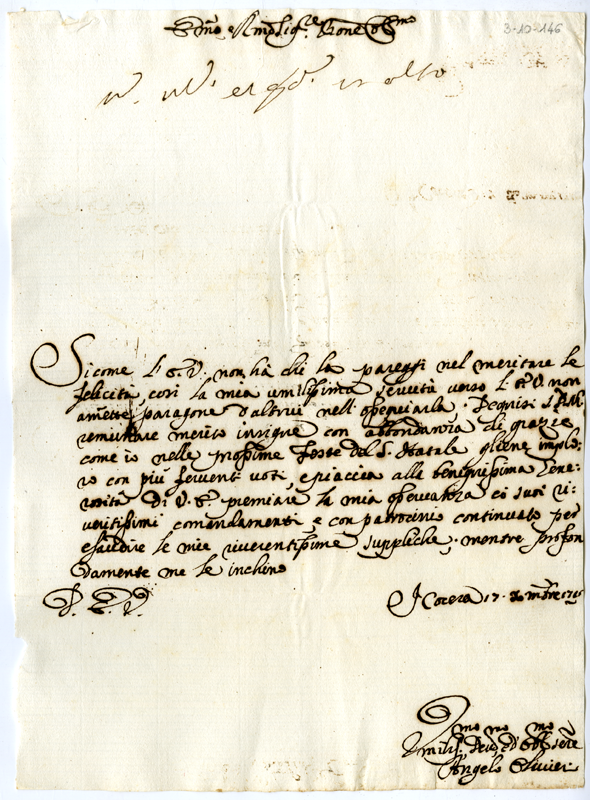 Em̃o e Rmo Sig.re Prone Col.mo
3-10-146
in alto
Sicome l'E.V. non hà chi la pareggi nel meritare le
felicità, così la mia umilissima servitù verso l'E.V. non
amette paragone d'altrui nell'
remunerare merito insigne con abbondanza di grazie
come io nelle prossime feste del S. Natale gliene implo-
ro con più ferventi voti, e piaccia alla benignissima Gene-
rosità di V.E. premiare la mia osservanza co suoi ri-
veritissimi comandamenti, e con patrocinio continuato per
esaudire le mie riverentissime suppliche; mentre profon
damente me le inchino
D. E. V.
17. Xmbre
Umilis.mo Dev.mo ed Obl.mo Serre
Angelo